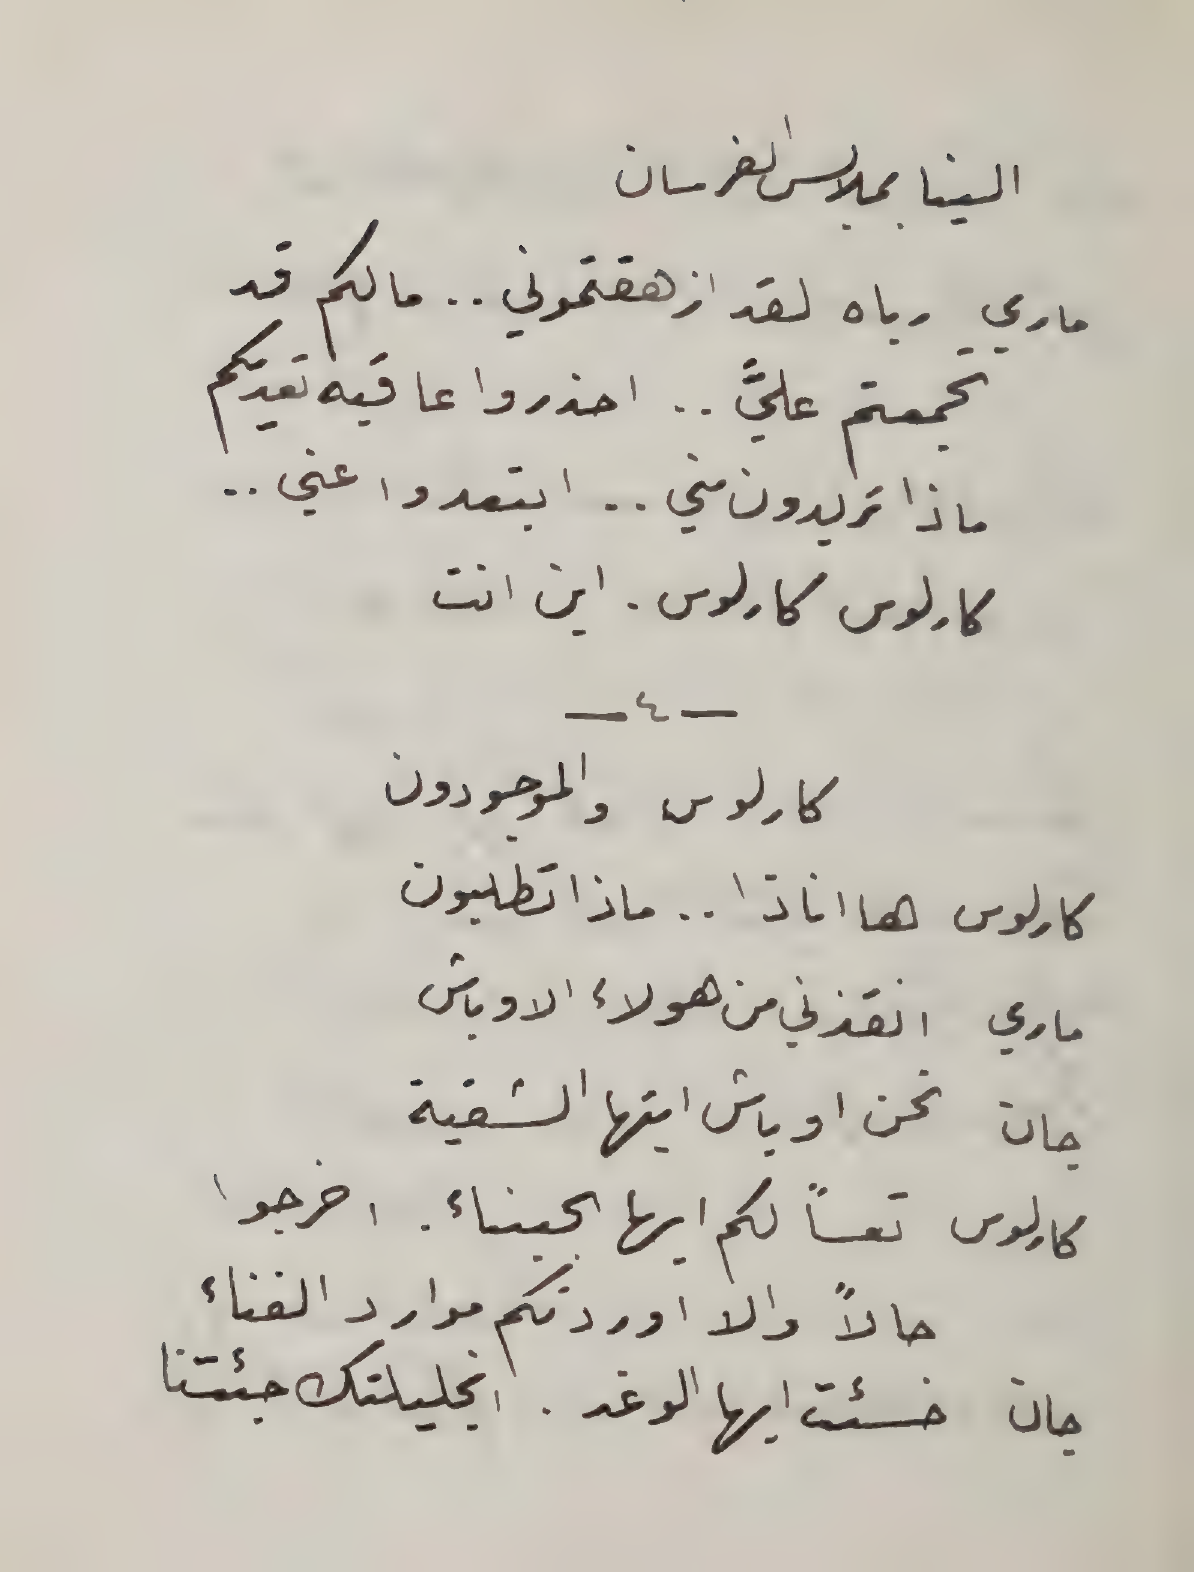 الينا بملابس الفرسان
ماري رباه لقد ازهقتموني .. مالكم قد
تجمعتم عليَّ .. احذروا عاقبه تعديكم
ماذا تريدون مني .. ابتعدوا عني ..
كارلوس كارلوس . اين انت
— ٤ —
كارلوس والموجودون
كارلوس ها اناذا .. ماذا تطلبون
ماري انقذني من هولاء الاوباش
جان نحن اوباش ايتها الشقية
كارلوس تعساً لكم ايها الجبناء . اخرجوا
حالاً والا اوردتكم موارد الفناء
جان خسئت ايها الوغد . انجليلتك جئتنا